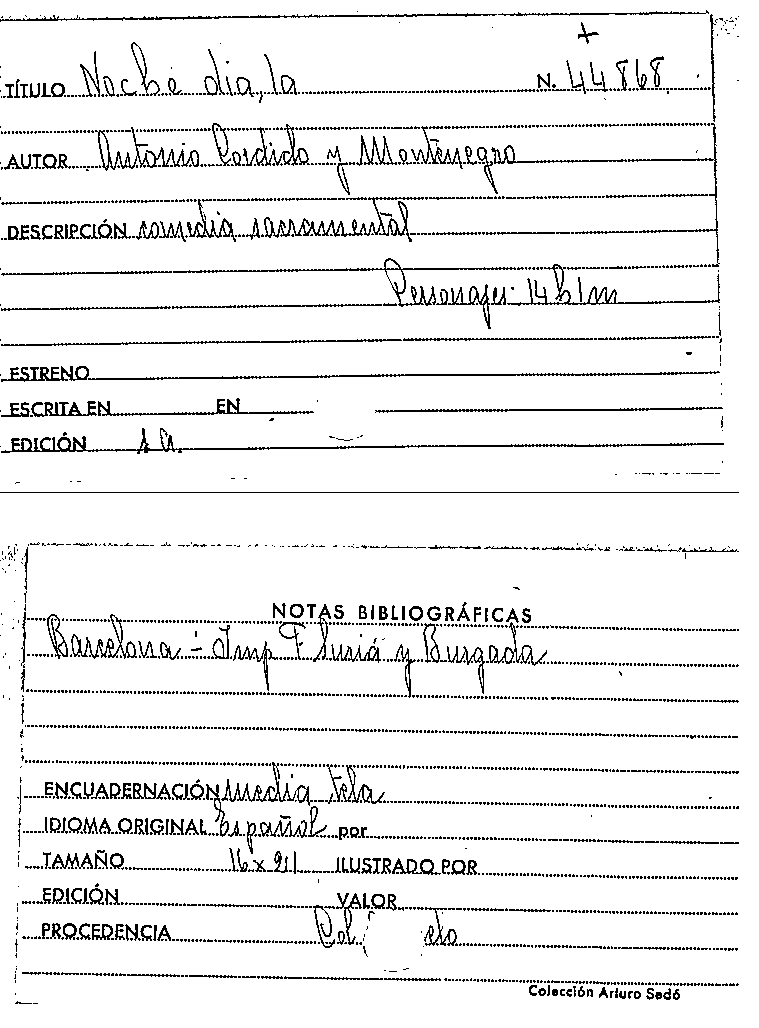 +
TÍTULO Noche dia, la N. 44868
AUTOR Antonio Cordido y Montenegro
DESCRIPCIÓN comedia sacramental
Personajes: 14 h 1 m
ESTRENO
ESCRITA EN EN
EDICIÓN s.a.
NOTAS BIBLIOGRÁFICAS
Barcelona - Imp F Suriá y Burgada
ENCUADERNACIÓN media tela
IDIOMA ORIGINAL Español por
TAMAÑO 16 x 21 ILUSTRADO POR
EDICIÓN VALOR
PROCEDENCIA Col
Colección Arturo Sedó